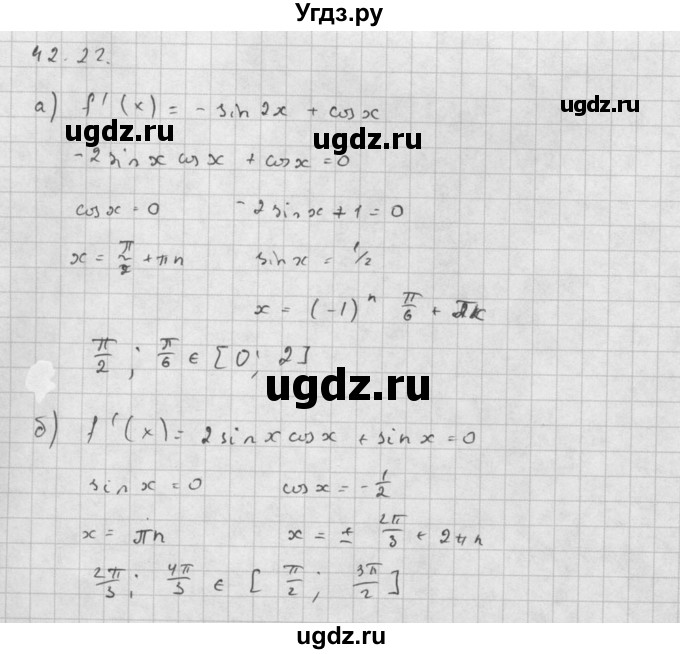 Угдз.ру
42.22.
а) f'(x) = - sin 2x + cos x
ugdz.ru ugdz.ru
-2 sin x cos x + cos x = 0
cos x = 0 -2 sin x + 1 = 0
x = π/2 + πn sin x = 1/2
ugdz.ru
x = (-1)^n π/6 + πk
π/2 ; π/6 ∈ [0; 2]
ugdz.ru
б) f'(x) = 2 sin x cos x + sin x = 0
ugdz.ru ugdz.ru
sin x = 0 cos x = -1/2
x = πn x = ± 2π/3 + 2πn
2π/3 ; 4π/3 ∈ [π/2 ; 3π/2]
ugdz.ru
ugdz.ru